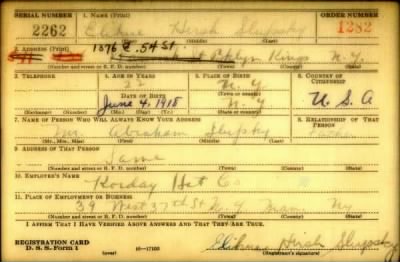 SERIAL NUMBER 1. NAME (Print) ORDER NUMBER
2262 Elihue Hirsh Slupsky 1282
(First) (Middle) (Last)
2. ADDRESS (Print) 1376 E. 54 St.
Bklyn Kings N.Y.
(Number and street or R. F. D. number) (Town) (County) (State)
3. TELEPHONE 4. AGE IN YEARS 5. PLACE OF BIRTH 6. COUNTRY OF CITIZENSHIP
22 N.Y.
DATE OF BIRTH (Town or county)
June 4, 1918 N.Y. U.S.A
(Exchange) (Number) (Mo.) (Day) (Yr.) (State or country)
7. NAME OF PERSON WHO WILL ALWAYS KNOW YOUR ADDRESS 8. RELATIONSHIP OF THAT PERSON
Mr. Abraham Slupsky Father
(Mr., Mrs., Miss) (First) (Middle) (Last)
9. ADDRESS OF THAT PERSON
Same
(Number and street or R. F. D. number) (Town) (County) (State)
10. EMPLOYER'S NAME
Korday Hat Co.
11. PLACE OF EMPLOYMENT OR BUSINESS
39 West 37th St N.Y. Man. NY
(Number and street or R. F. D. number) (Town) (County) (State)
I AFFIRM THAT I HAVE VERIFIED ABOVE ANSWERS AND THAT THEY ARE TRUE.
REGISTRATION CARD
D. S. S. Form 1 16—17105 Elihue Hirsh Slupsky
(Registrant's signature)